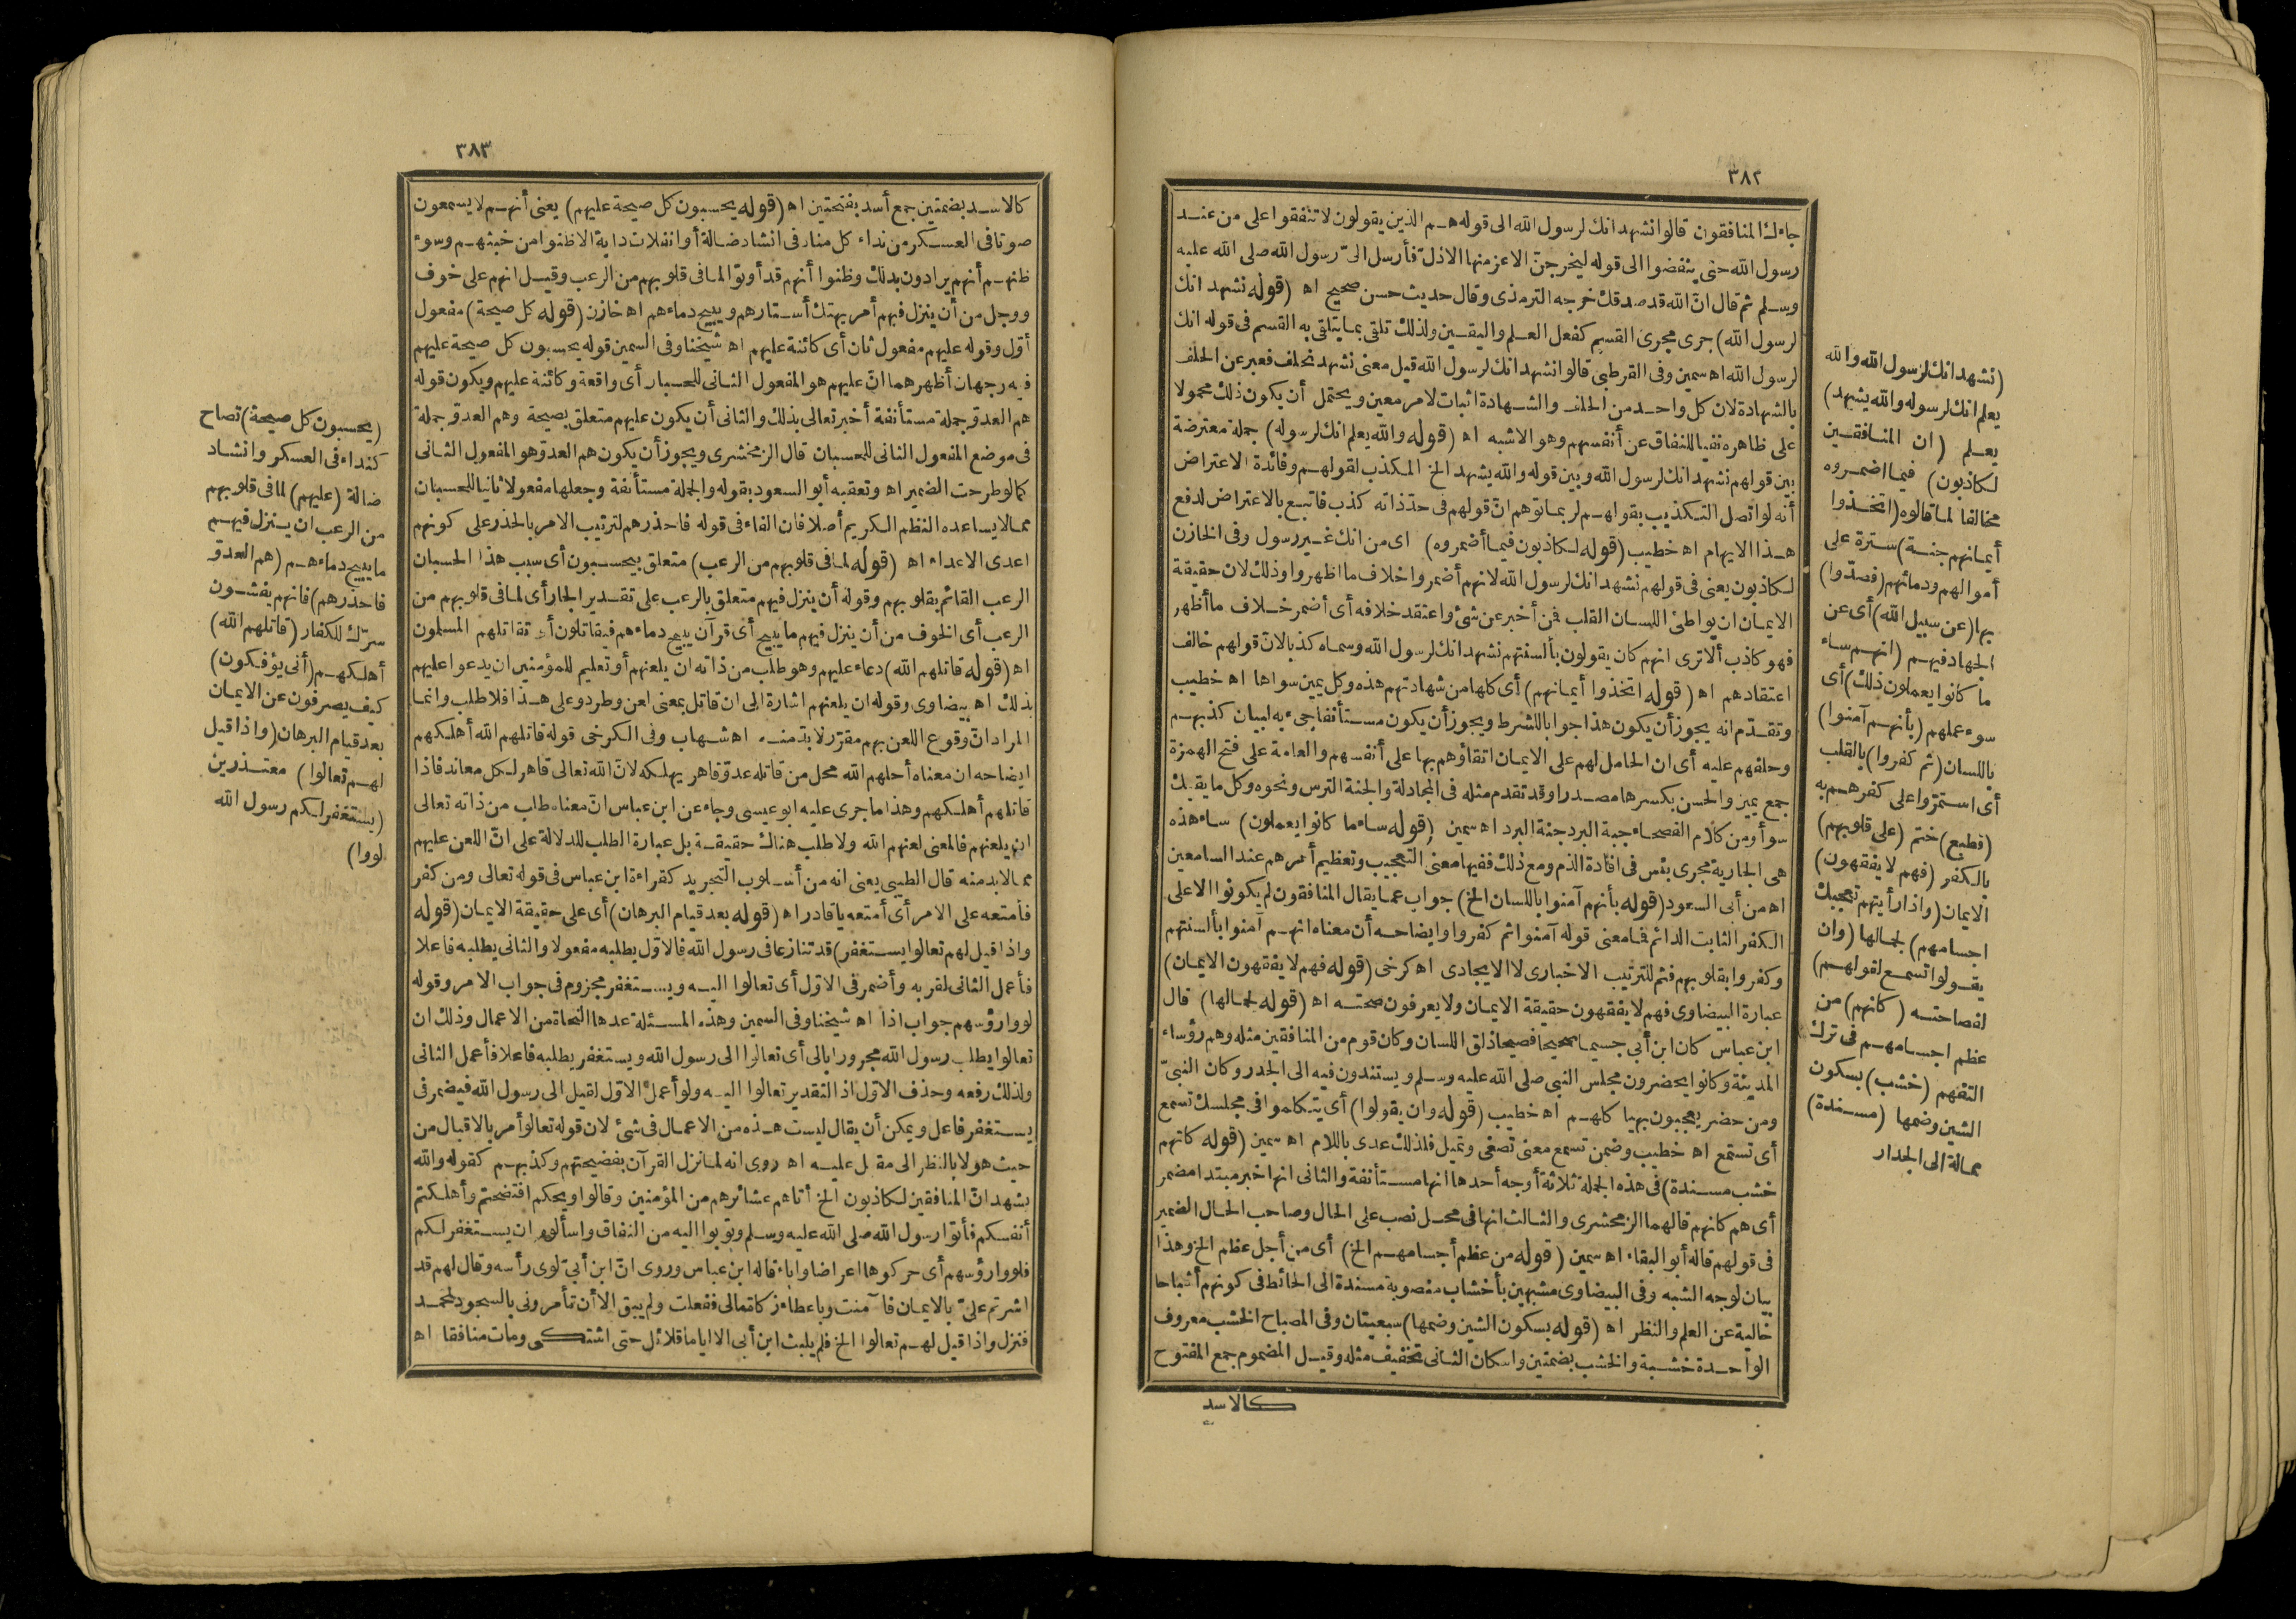 ٣٨٢
جاءك المنافقون قالوا نشهد انك لرسول الله الى قوله هم الذين يقولون لا تنفقوا على من عند
رسول الله حتى ينفضوا الى قوله ليخرجنّ الاعز منها الاذل فأرسل الىّ رسول الله صلى الله عليه
وسلم ثم قال انّ الله قد صدقك خرجه الترمذى وقال حديث حسن صحيح اه (قوله نشهد انك
لرسول الله) جرى مجرى القسم كفعل العلم واليقين ولذلك تلقى بما يتلقى به القسم فى قوله انك
لرسول الله اه سمين وفى القرطبى قالوا نشهد انك لرسول الله قيل معنى نشهد نحلف فعبر عن الحلف
بالشهادة لان كل واحد من الحلف والشهادة اثبات لامر معين ويحتمل أن يكون ذلك محمولا
على ظاهره نفيا للنفاق عن أنفسهم وهو الاشبه اه (قوله والله يعلم انك لرسوله) جملة معترضة
بين قولهم نشهد انك لرسول الله وبين قوله والله يشهد الخ المكذب لقولهم وفائدة الاعتراض
أنه لو اتصل التكذيب بقولهم لربما توهم انّ قولهم فى حدّ ذاته كذب فاتبع بالاعتراض لدفع
هذا الايهام اه خطيب (قوله لكاذبون فيما أضمروه) اى من انك غير رسول وفى الخازن
لكاذبون يعنى فى قولهم نشهد انك لرسول الله لانهم أضمروا خلاف ما اظهروا وذلك لان حقيقة
الايمان ان يواطئ اللسان القلب فمن أخبر عن شئ واعتقد خلافه أى أضمر خلاف ما أظهر
فهو كاذب ألا ترى انهم كان يقولون بألسنتهم نشهد انك لرسول الله وسماه كذبا لانّ قولهم خالف
اعتقادهم اه (قوله اتخذوا أيمانهم) أى كلها من شهادتهم هذه وكل يمين سواها اه خطيب
وتقدّم انه يجوز أن يكون هذا جوابا للشرط ويجوز أن يكون مستأنفا جىء به لبيان كذبهم
وحلفهم عليه أى ان الحامل لهم على الايمان اتقاؤهم بها على أنفسهم والعامة على فتح الهمزة
جمع يمين والحسن بكسرها مصدرا وقد تقدم مثله فى المجادلة والجنة الترس ونحوه وكل ما يقيك
سوأ ومن كلام الفصحاء جبة البرد جنة البرد اه سمين (قوله ساء ما كانوا يعملون) ساء هذه
هى الجارية مجرى بئس فى افادة الذم ومع ذلك ففيها معنى التعجيب وتعظيم أمرهم عند السامعين
اه من أبى السعود (قوله بأنهم آمنوا باللسان الخ) جواب عما يقال المنافقون لم يكونوا الا على
الكفر الثابت الدائم فما معنى قوله آمنوا ثم كفروا وايضاحه أن معناه انهم آمنوا بألسنتهم
وكفروا بقلوبهم فثم للترتيب الاخبارى لا الايجادى اه كرخى (قوله فهم لا يفقهون الايمان)
عبارة البيضاوى فهم لا يفقهون حقيقة الايمان ولا يعرفون صحته اه (قوله لجمالها) قال
ابن عباس كان ابن أبى جسيما صحيحا فصيحا ذلق اللسان وكان قوم من المنافقين مثله وهم رؤساء
المدينة وكانوا يحضرون مجلس النبى صلى الله عليه وسلم ويستندون فيه الى الجدر وكان النبىّ
ومن حضر يعجبون بهياكلهم اه خطيب (قوله وان يقولوا) أى يتكلموا فى مجلسك تسمع
أى تستمع اه خطيب وضمن تسمع معنى تصغى وتميل فلذلك عدى باللام اه سمين (قوله كانهم
خشب مسندة) فى هذه الجملة ثلاثة أوجه أحدها انها مستأنفة والثانى انها خبر مبتدا مضمر
أى هم كانهم قالهما الزمخشرى والثالث انها فى محل نصب على الحال وصاحب الحال الضمير
فى قولهم قاله أبو البقاء اه سمين (قوله من عظم أجسامهم الخ) أى من أجل عظم الخ وهذا
بيان لوجه الشبه وفى البيضاوى مشبهين بأخشاب منصوبة مسندة الى الحائط فى كونهم أشباحا
خالية عن العلم والنظر اه (قوله بسكون الشين وضمها) سبعيتان وفى المصباح الخشب معروف
الواحدة خشبة والخشب بضمتين واسكان الثانى تخفيف مثله وقيل المضموم جمع المفتوح
كالاسد
(نشهد انك لرسول الله والله
يعلم انك لرسوله والله يشهد)
يعلم (ان المنافقين
لكاذبون) فيما اضمروه
مخالفا لما قالوه (اتخذوا
أيمانهم جنة) سترة على
أموالهم ودمائهم (فصدّوا)
بها (عن سبيل الله) أى عن
الجهاد فيهم (انهم ساء
ما كانوا يعملون ذلك) أى
سوء عملهم (بأنهم آمنوا)
باللسان (ثم كفروا) بالقلب
أى استمرّوا على كفرهم به
(فطبع) ختم (على قلوبهم)
بالكفر (فهم لا يفقهون)
الايمان (واذا رأيتهم تعجبك
اجسامهم) لجمالها (وان
يقولوا تسمع لقولهم)
لفصاحته (كانهم) من
عظم اجسامهم فى ترك
التفهم (خشب) بسكون
الشين وضمها (مسندة)
ممالة الى الجدار
٣٨٣
كالاسد بضمتين جمع أسد بفتحتين اه (قوله يحسبون كل صيحة عليهم) يعنى أنهم لا يسمعون
صوتا فى العسكر من نداء كل مناد فى انشاد ضالة أو انفلات دابة الا ظنوا من خبثهم وسوء
ظنهم أنهم يرادون بذلك وظنوا أنهم قد أوتوا لما فى قلوبهم من الرعب وقيل انهم على خوف
ووجل من أن ينزل فيهم أمر يهتك أستارهم ويبيح دماءهم اه خازن (قوله كل صيحة) مفعول
أوّل وقوله عليهم مفعول ثان أى كائنة عليهم اه شيخنا وفى السمين قوله يحسبون كل صيحة عليهم
فيه وجهان أظهرهما انّ عليهم هو المفعول الثانى للحسبان أى واقعة وكائنة عليهم ويكون قوله
هم العدوّ جملة مستأنفة أخبر تعالى بذلك والثانى أن يكون عليهم متعلق بصيحة وهم العدوّ جملة
فى موضع المفعول الثانى للحسبان قال الزمخشرى ويجوز أن يكون هم العدوّ هو المفعول الثانى
كما لو طرحت الضمير اه وتعقبه أبو السعود بقوله والجملة مستأنفة وجعلها مفعولا ثانيا للحسبان
مما لا يساعده النظم الكريم أصلا فان الفاء فى قوله فاحذرهم لترتيب الامر بالحذر على كونهم
اعدى الاعداء اه (قوله لما فى قلوبهم من الرعب) متعلق بيحسبون أى سبب هذا الحسبان
الرعب القائم بقلوبهم وقوله أن ينزل فيهم متعلق بالرعب على تقدير الجار أى لما فى قلوبهم من
الرعب أى الخوف من أن ينزل فيهم ما يبيح أى قرآن يبيح دماءهم فيقاتلون أى تقاتلهم المسلمون
اه (قوله قاتلهم الله) دعاء عليهم وهو طلب من ذاته ان يلعنهم أو تعليم للمؤمنين ان يدعوا عليهم
بذلك اه بيضاوى وقوله ان يلعنهم اشارة الى ان قاتل بمعنى لعن وطرد وعلى هذا فلا طلب وانما
المراد انّ وقوع اللعن بهم مقرّر لا بدّ منه اه شهاب وفى الكرخى قوله قاتلهم الله أهلكهم
ايضاحه ان معناه أحلهم الله محل من قاتله عدوّ قاهر يهلكه لانّ الله تعالى قاهر لكل معاند فاذا
قاتلهم أهلكهم وهذا ما جرى عليه ابو عيسى وجاء عن ابن عباس انّ معناه طلب من ذاته تعالى
ان يلعنهم فالمعنى لعنهم الله ولا طلب هناك حقيقة بل عبارة الطلب للدلالة على انّ اللعن عليهم
مما لا بد منه قال الطيبى يعنى انه من أسلوب التجريد كقراءة ابن عباس فى قوله تعالى ومن كفر
فأمتعه على الامر أى أمتعه يا قادر اه (قوله بعد قيام البرهان) أى على حقيقة الايمان (قوله
واذا قيل لهم تعالوا يستغفر) قد تنازعا فى رسول الله فالاوّل يطلبه مفعولا والثانى يطلبه فاعلا
فأعمل الثانى لقربه وأضمر فى الاوّل أى تعالوا اليه ويستغفر مجزوم فى جواب الامر وقوله
لووا رؤسهم جواب اذا اه شيخنا وفى السمين وهذه المسئلة عدها النحاة من الاعمال وذلك ان
تعالوا يطلب رسول الله مجرورا بالى أى تعالوا الى رسول الله ويستغفر يطلبه فاعلا فأعمل الثانى
ولذلك رفعه وحذف الاوّل اذ التقدير تعالوا اليه ولو أعمل الاوّل لقيل الى رسول الله فيضمر فى
يستغفر فاعل ويمكن أن يقال ليست هذه من الاعمال فى شئ لان قوله تعالوا أمر بالاقبال من
حيث هو لا بالنظر الى مقبل عليه اه روى انه لما نزل القرآن بفضيحتهم وكذبهم كقوله والله
يشهد انّ المنافقين لكاذبون الخ أتاهم عشائرهم من المؤمنين وقالوا ويحكم افتضحتم وأهلكتم
أنفسكم فأتوا رسول الله صلى الله عليه وسلم وتوبوا اليه من النفاق واسألوه ان يستغفر لكم
فلووا رؤسهم أى حركوها اعراضا واباء قاله ابن عباس وروى انّ ابن أبىّ لوى رأسه وقال لهم قد
اشرتم علىّ بالايمان فآمنت وباعطاء زكاة مالى ففعلت ولم يبق الا أن تأمرونى بالسجود لمحمد
فنزل واذا قيل لهم تعالوا الخ فلم يلبث ابن أبى الا اياما قلائل حتى اشتكى ومات منافقا اه
(يحسبون كل صيحة) تصاح
كنداء فى العسكر وانشاد
ضالة (عليهم) لما فى قلوبهم
من الرعب ان ينزل فيهم
ما يبيح دماءهم (هم العدوّ
فاحذرهم) فانهم يفشون
سرّك للكفار (قاتلهم الله)
أهلكهم (أنى يؤفكون)
كيف يصرفون عن الايمان
بعد قيام البرهان (واذا قيل
لهم تعالوا) معتذرين
(يستغفر لكم رسول الله
لووا)